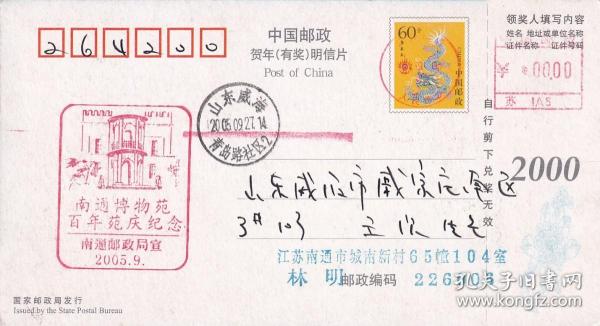 264200
中国邮政
贺年(有奖)明信片
Post of China
60分
中国邮政
领奖人填写内容
姓名 地址或单位名称
证件名称 证件号码
0000
苏 1A5
自行剪下兑奖无效
2000
山东威海
2005.09.27.14
青岛路社区2
南通博物苑
百年苑庆纪念
南通邮政局宣
2005.9.
山东威海市
3# 103
江苏南通市城南新村65幢104室
林 明
邮政编码 226006
国家邮政局发行
Issued by the State Postal Bureau
孔夫子旧书网
www.kongfz.com